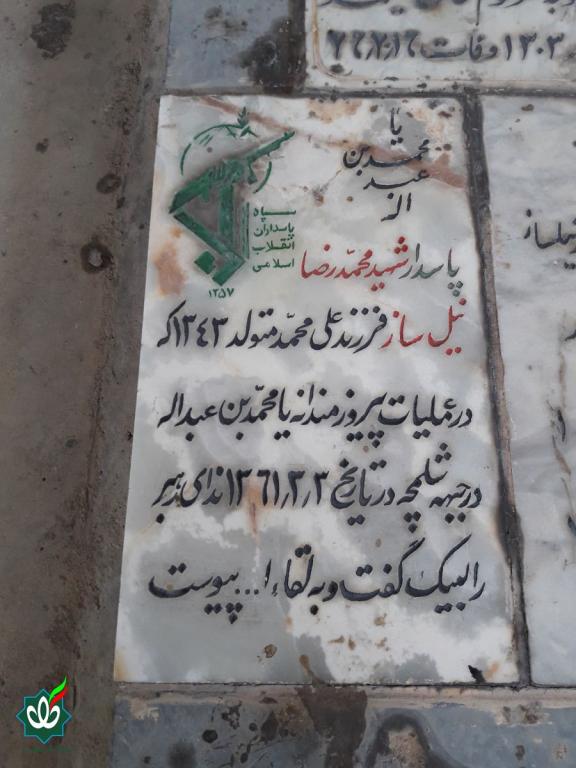 ۱۳۰۳ وفات ۲۶٫۷٫۱۶
یا
محمد بن
عبد
اله
سپاه
پاسداران
انقلاب
اسلامی
۱۳۵۷
پاسدار شهید محمّد رضا
نیل ساز فرزند علی محمّد متولد ۱۳۴۳ که
در عملیات پیروزمندانه یا محمّد بن عبداله
در جبهه شلمچه در تاریخ ۱۳۶۱٫۳٫۳ ندای رهبر
را لبیک گفت و به لقاء ا... پیوست